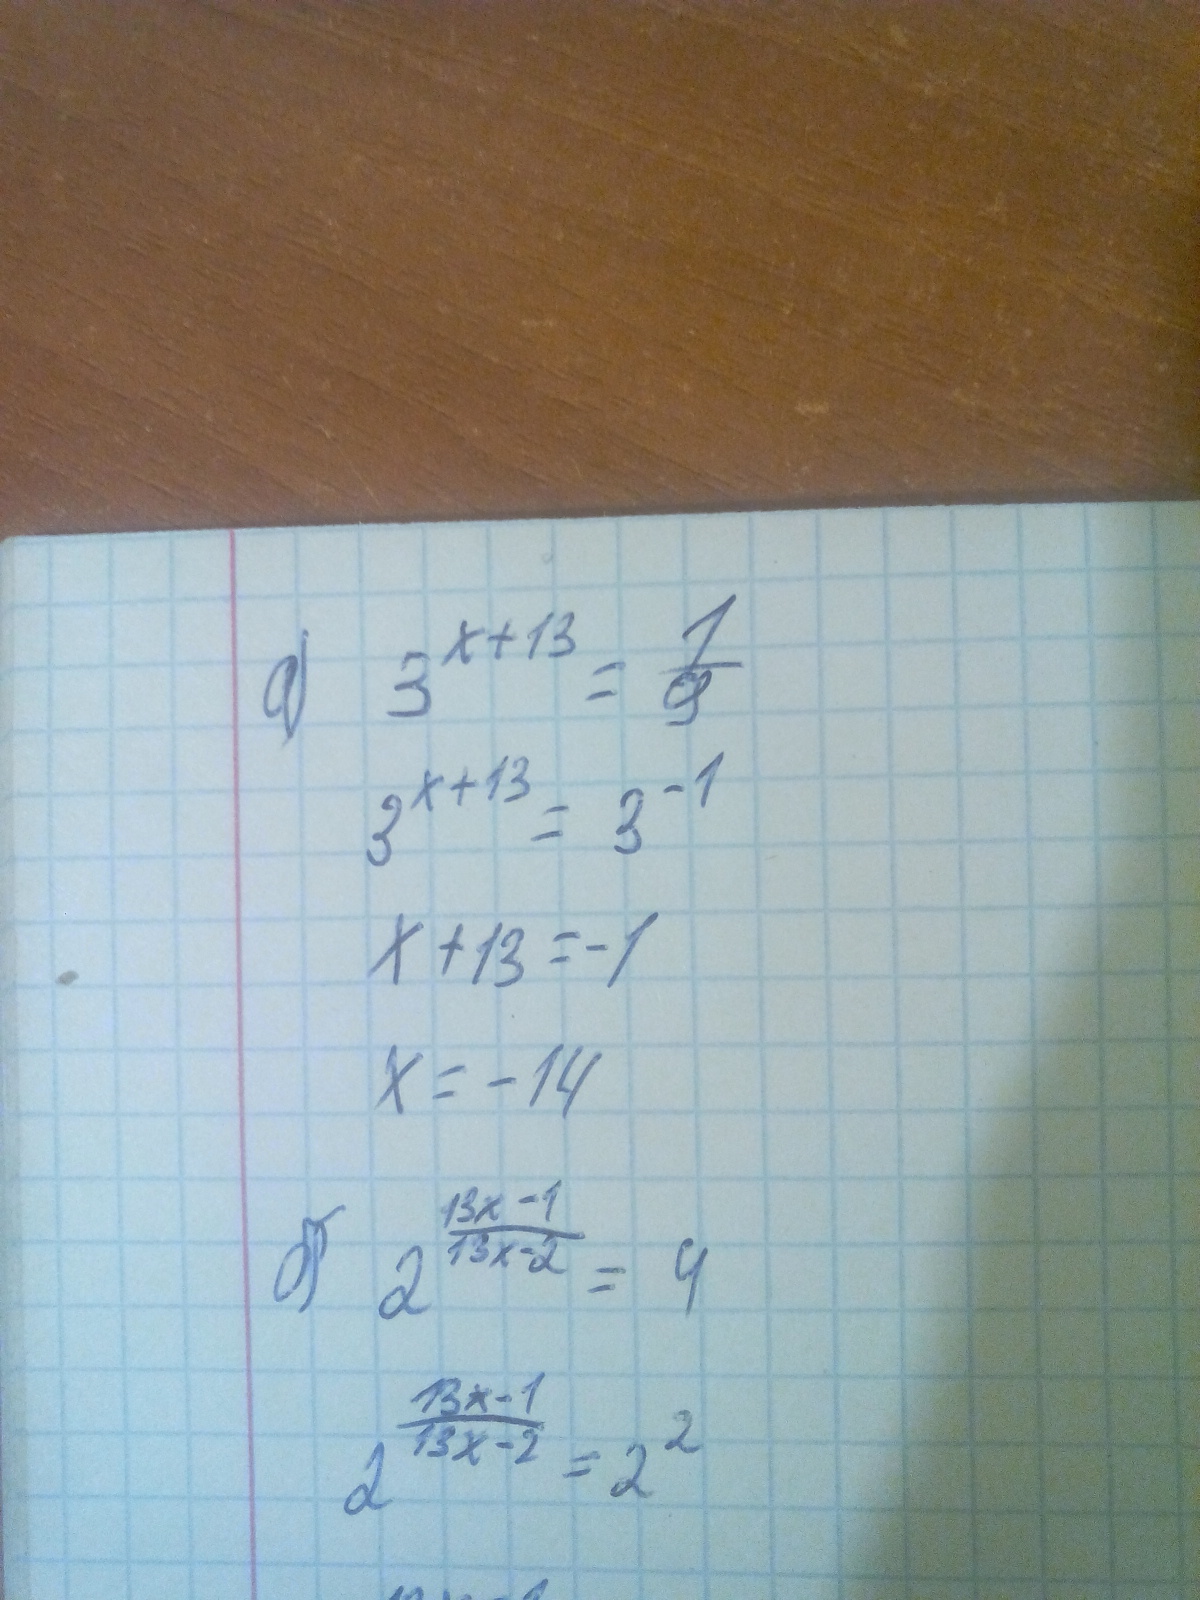 а) 3^{x+13} = \frac{1}{3}
3^{x+13} = 3^{-1}
x+13=-1
x=-14
б) 2^{\frac{13x-1}{13x-2}} = 4
2^{\frac{13x-1}{13x-2}} = 2^2